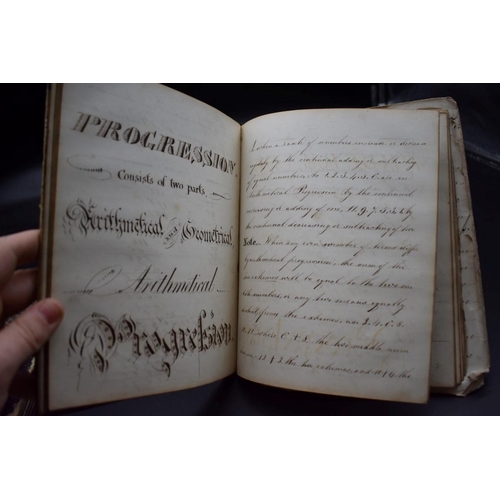 PROGRESSION.
Consists of two parts
Arithmetical and Geometrical
Arithmetical
Progression.
When a rank of numbers increase or decrease
by the continual adding or subtracting
of equal numbers, So 1.2.3.4.5.6 are in
Arithmetical Progression by the continual
increasing or adding of one, 11, 9, 7, 5, 3, 1, by
the continual decreasing or subtracting of two
Note. When any even number of terms differ
by Arithmetical progression, the sum of the
two extremes will be equal to the two
middle numbers, or any two means equally
distant from the extremes, as 2. 4. 6. 8.
where 6 + 8, the two middle
the two extremes, and the